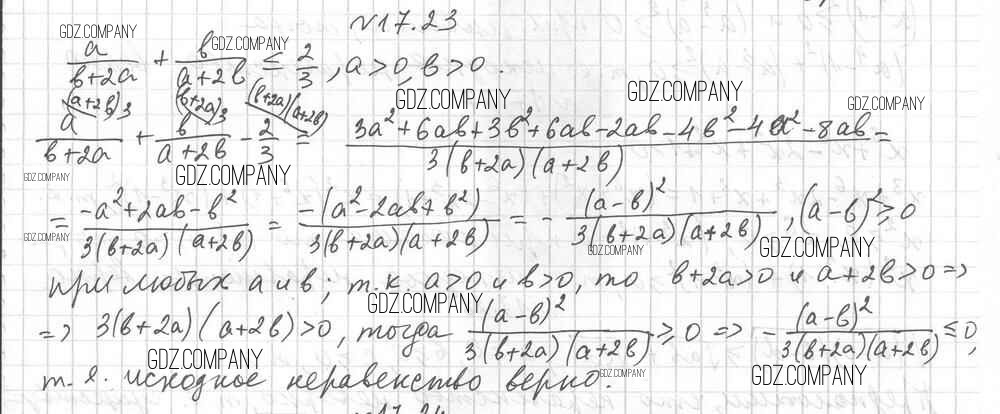 №17.23
a/(b+2a) + b/(a+2b) ≤ 2/3, a>0, b>0.
a/(b+2a) (a+2b)3 + b/(a+2b) (b+2a)3 − 2/3 (b+2a)(a+2b) = (3a²+6ab+3b²+6ab−2ab−4b²−4a²−8ab)/(3(b+2a)(a+2b)) =
= (−a²+2ab−b²)/(3(b+2a)(a+2b)) = −(a²−2ab+b²)/(3(b+2a)(a+2b)) = − (a−b)²/(3(b+2a)(a+2b)), (a−b)²≥0
при любых a и b; т.к. a>0 и b>0, то b+2a>0 и a+2b>0 =>
=> 3(b+2a)(a+2b)>0, тогда (a−b)²/(3(b+2a)(a+2b)) ≥0 => − (a−b)²/(3(b+2a)(a+2b)) ≤0,
т.е. исходное неравенство верно.
GDZ.COMPANY
GDZ.COMPANY
GDZ.COMPANY
GDZ.COMPANY
GDZ.COMPANY
GDZ.COMPANY
GDZ.COMPANY
GDZ.COMPANY
GDZ.COMPANY
GDZ.COMPANY
GDZ.COMPANY
GDZ.COMPANY
GDZ.COMPANY
GDZ.COMPANY